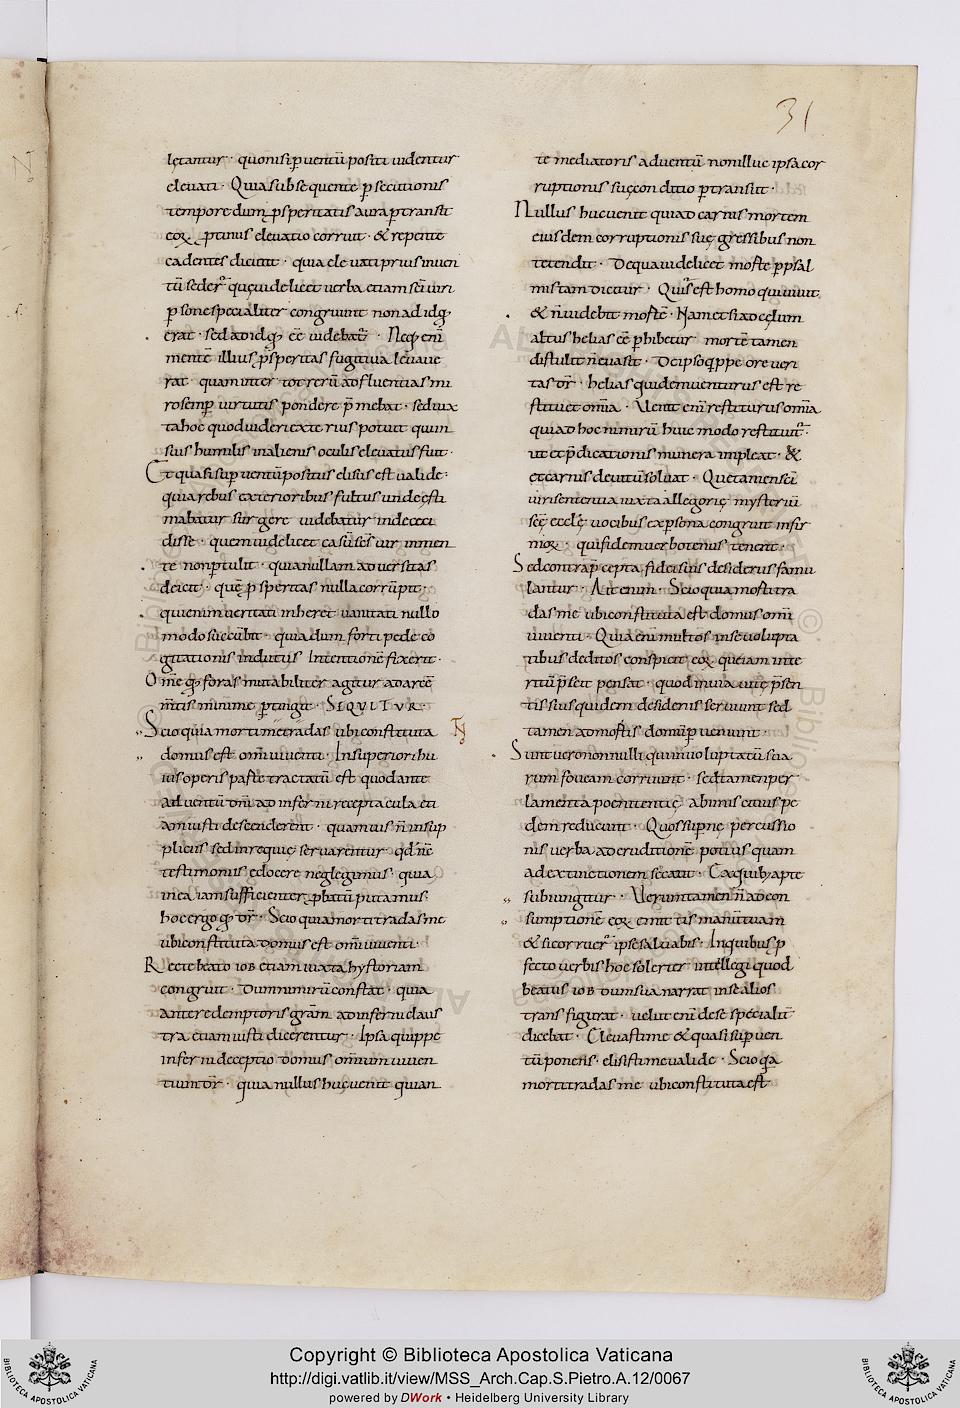 31
lętantur · quoniſ sup uentū positi uidentur
eleuati · Quia subsequente p secutionis
tempore dum psperitatis aura ptransit
eoꝝ ptinus eleuatio corruit · & repente
cadentes dicunt · quia eleuati prius in uen
tū sederᷓ quę uidelicet uerba etiam sc̄i uiri
p sone specialiter congruunt non ad idqđ
erat · sed ad idqđ eē uidebatᷓ · Neq; eni
mentē illius psperitas fugitiua leuaue
rat · quam inter tot rerū adfluentias mi
ro semp uirtutis pondere p̄mebat · sed iux
ta hoc quod uideri exterius potuit quan
suis humilis in alienis oculis eleuatus fuit ·
Et quasi sup uentū positus elisus est ualide ·
quia rebus exterioribus fultus unde ęsti
mabatur surgere uidebatur inde ceci
disse · quem uidelicet casū sc̄s uir in men
te non ptulit · quia nullam aduersitas
deicit · quē psperitas nulla corrūpit ·
qui enim ueritati inheret uanitati nullo
modo succūbit · quia dum forti pede co
gitationis indutus Intentionē fixerit ·
Om̄e qđ foras mutabiliter agitur ad arcē
m̄tis minime ptingit · SEQUITUR ·
Scio quia morti me tradas ubi constituta
domus est om̄i uiuenti · In superiori hu
ius operis parte tractatū est quod ante
aduentū dn̄i ad inferni receptacula eti
am iusti descenderent · quamuis n̄ in sup
pliciis sed in requię seruarentur qđ nē
testimoniis edocere neglegimus · quia
in ea iam sufficienter pbatū putamus ·
hoc ergo qđ dr̄ · Scio quia morti tradas me
ubi constituta domus est om̄i uiuenti ·
Recte beato iob etiam iuxta hystoriam
congruit · Dum nimirū constat · quia
ante redemptoris grām ad inferni claus
tra etiam iusti ducerentur · Ipsa quippe
inferni deceptio domus omnium uiuen
tium dr̄ · quia nullus huc uenit qui an
te mediatoris aduentū non illuc ipsa cor
ruptionis suę conditio ptransiit ·
Nullus huc uenit qui ad carnis mortem
eiusdem corruptionis suę gressibus non
tetendit · De qua uidelicet morte p psal
mistam dicitur · Quis est homo qui uiuit
& n̄ uidebit mortē · Nam etsi ad cęlum
altus helias eē phibetur mortē tamen
distulit n̄ euasit · De ipso q̄ppe ore ueri
tas dr̄ · helias quidem uenturus est re
stituet om̄ia · Uenit eni restiturus om̄ia
quia ad hoc nimirū huic modo restituitᷓ ·
ut et p̄dicationis munera impleat · &
et carnis deuitū soluat · Quę tamen sc̄i
uiri sententia iuxta allegorię mysteriū
sc̄ę ecclę uocibus ex psona congruit infir
moꝝ · qui fidem uerbo tenus tenent ·
Sed contra p̄cepta fidei suis desideriis famu
lantur · Ait enim · Scio quia morti tra
das me ubi constituta est domus om̄i
uiuenti · Quia eni multos in se uolupta
tibus deditos conspicit eoꝝ quę iam inte
ritū p̄scit pensat · quod in uia uitę p̄sen
tis suis quidem desideriis seruiunt sed
tamen ad mortis domū pueniunt ·
Sunt uero nonnulli qui in uoluptatū sua
rum foueam corruunt · sed tamen per
lamenta poenitentię ab imis eiuis pe
dem reducunt · Quos supnę percussio
nis uerba ad eruditionē potius quam
ad extinctionem secant · Ea quib; apte
subiungitur · Uerumtamen n̄ ad con
sumptionē eoꝝ emittis manū tuam
& si corruerᷓ ipse saluabis · In quibus p
fecto uerbis hoc solerter intellegi quod
beatus iob dum sua narrat in se alios
transfigurat · uelut eni de se specialit̄
dicebat · Eleuasti me & quasi sup uen
tū ponens · elisisti me ualide · Scio qa
morti tradas me ubi constituta est
Copyright © Biblioteca Apostolica Vaticana
http://digi.vatlib.it/view/MSS_Arch.Cap.S.Pietro.A.12/0067
powered by DWork • Heidelberg University Library